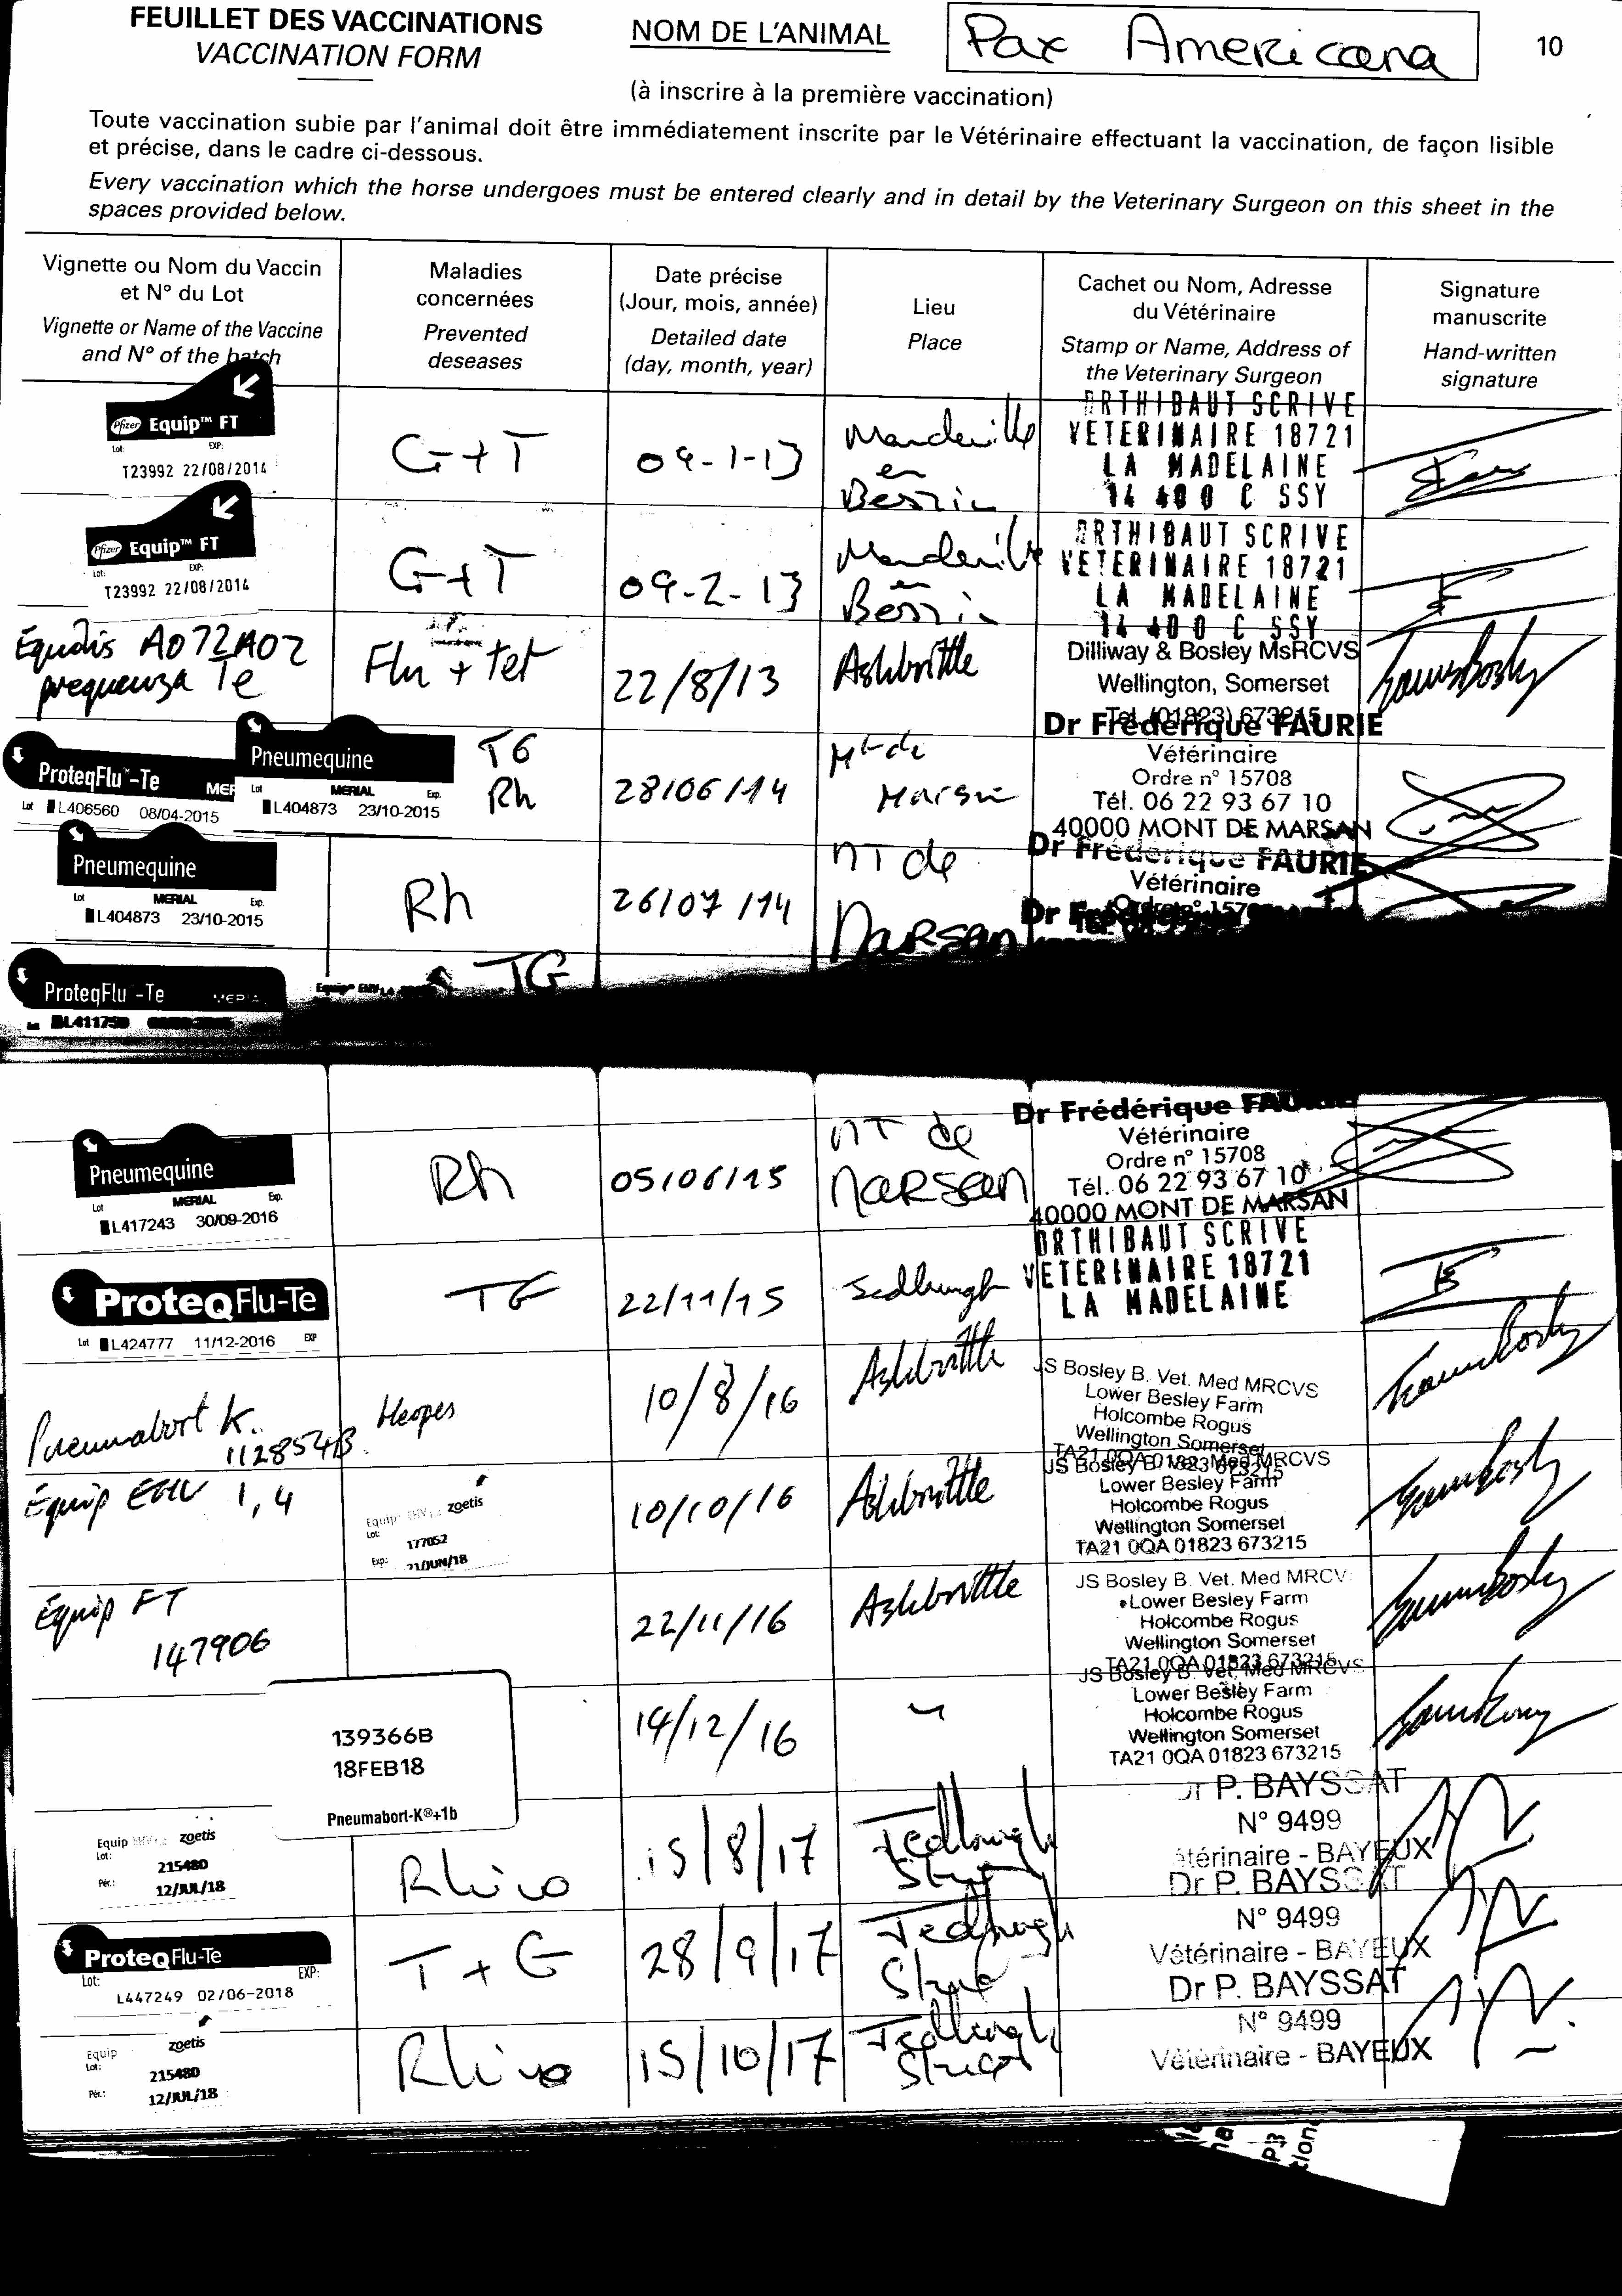 FEUILLET DES VACCINATIONS
VACCINATION FORM
NOM DE L'ANIMAL
Pax Americana
10
(à inscrire à la première vaccination)
Toute vaccination subie par l'animal doit être immédiatement inscrite par le Vétérinaire effectuant la vaccination, de façon lisible
et précise, dans le cadre ci-dessous.
Every vaccination which the horse undergoes must be entered clearly and in detail by the Veterinary Surgeon on this sheet in the
spaces provided below.
Vignette ou Nom du Vaccin
et N° du Lot
Vignette or Name of the Vaccine
and N° of the batch
Maladies
concernées
Prevented
deseases
Date précise
(Jour, mois, année)
Detailed date
(day, month, year)
Lieu
Place
Cachet ou Nom, Adresse
du Vétérinaire
Stamp or Name, Address of
the Veterinary Surgeon
Signature
manuscrite
Hand-written
signature
Pfizer Equip™ FT
Lot: EXP:
T23992 22/08/2014
G+T
09-1-13
Mandeville
en
Bessin
ORTHIBAUT SCRIVE
VETERINAIRE 18721
LA MADELAINE
14 400 C SSY
Pfizer Equip™ FT
Lot: EXP:
T23992 22/08/2014
G+T
09-2-13
Mandeville
en
Bessin
ORTHIBAUT SCRIVE
VETERINAIRE 18721
LA MADELAINE
14 400 C SSY
Equilis A072A02
prequenza Te
Flu + tet
22/8/13
Ashbrittle
Dilliway & Bosley MsRCVS
Wellington, Somerset
Tel. (01823) 673215
ProteqFlu™-Te MER
Lot L406560 08/04-2015
Pneumequine
Lot MERIAL Exp.
L404873 23/10-2015
TG
Rh
28/06/14
Mt de
Marsan
Dr Frédérique FAURIE
Vétérinaire
Ordre n° 15708
Tél. 06 22 93 67 10
40000 MONT DE MARSAN
Pneumequine
Lot MERIAL Exp.
L404873 23/10-2015
Rh
26/07/14
MT de
MARSAN
Dr Frédérique FAURIE
Vétérinaire
ProteqFlu-Te
L411750
TG
Pneumequine
MERIAL
Lot Exp.
L417243 30/09-2016
Rh
05/06/15
MT de
MARSAN
Dr Frédérique FAURIE
Vétérinaire
Ordre n° 15708
Tél. 06 22 93 67 10
40000 MONT DE MARSAN
ProteqFlu-Te
Lot L424777 11/12-2016 EXP
TG
22/11/15
Jedburgh
ORTHIBAUT SCRIVE
VETERINAIRE 18721
LA MADELAINE
Pneumabort K.
112854B
Herpes
10/8/16
Ashbrittle
JS Bosley B. Vet. Med MRCVS
Lower Besley Farm
Holcombe Rogus
Wellington Somerset
TA21 0QA 01823 673215
Equip EHV 1,4
Equip EHV zoetis
Lot: 177052
Exp: 21/JUN/18
10/10/16
Ashbrittle
JS Bosley B. Vet. Med MRCVS
Lower Besley Farm
Holcombe Rogus
Wellington Somerset
TA21 0QA 01823 673215
Equip FT
147906
22/11/16
Ashbrittle
JS Bosley B. Vet. Med MRCV
Lower Besley Farm
Holcombe Rogus
Wellington Somerset
TA21 0QA 01823 673215
139366B
18FEB18
Pneumabort-K®+1b
14/12/16
"
JS Bosley B. Vet. Med MRCVS
Lower Besley Farm
Holcombe Rogus
Wellington Somerset
TA21 0QA 01823 673215
Equip zoetis
Lot: 215480
Pér.: 12/JUL/18
Rhino
15/8/17
Jedburgh
Stud
Dr P. BAYSSAT
N° 9499
Vétérinaire - BAYEUX
ProteqFlu-Te
Lot: EXP:
L447249 02/06-2018
T + G
28/9/17
Jedburgh
Stud
Dr P. BAYSSAT
N° 9499
Vétérinaire - BAYEUX
Equip zoetis
Lot: 215480
Pér.: 12/JUL/18
Rhino
15/10/17
Jedburgh
Stud
Dr P. BAYSSAT
N° 9499
Vétérinaire - BAYEUX